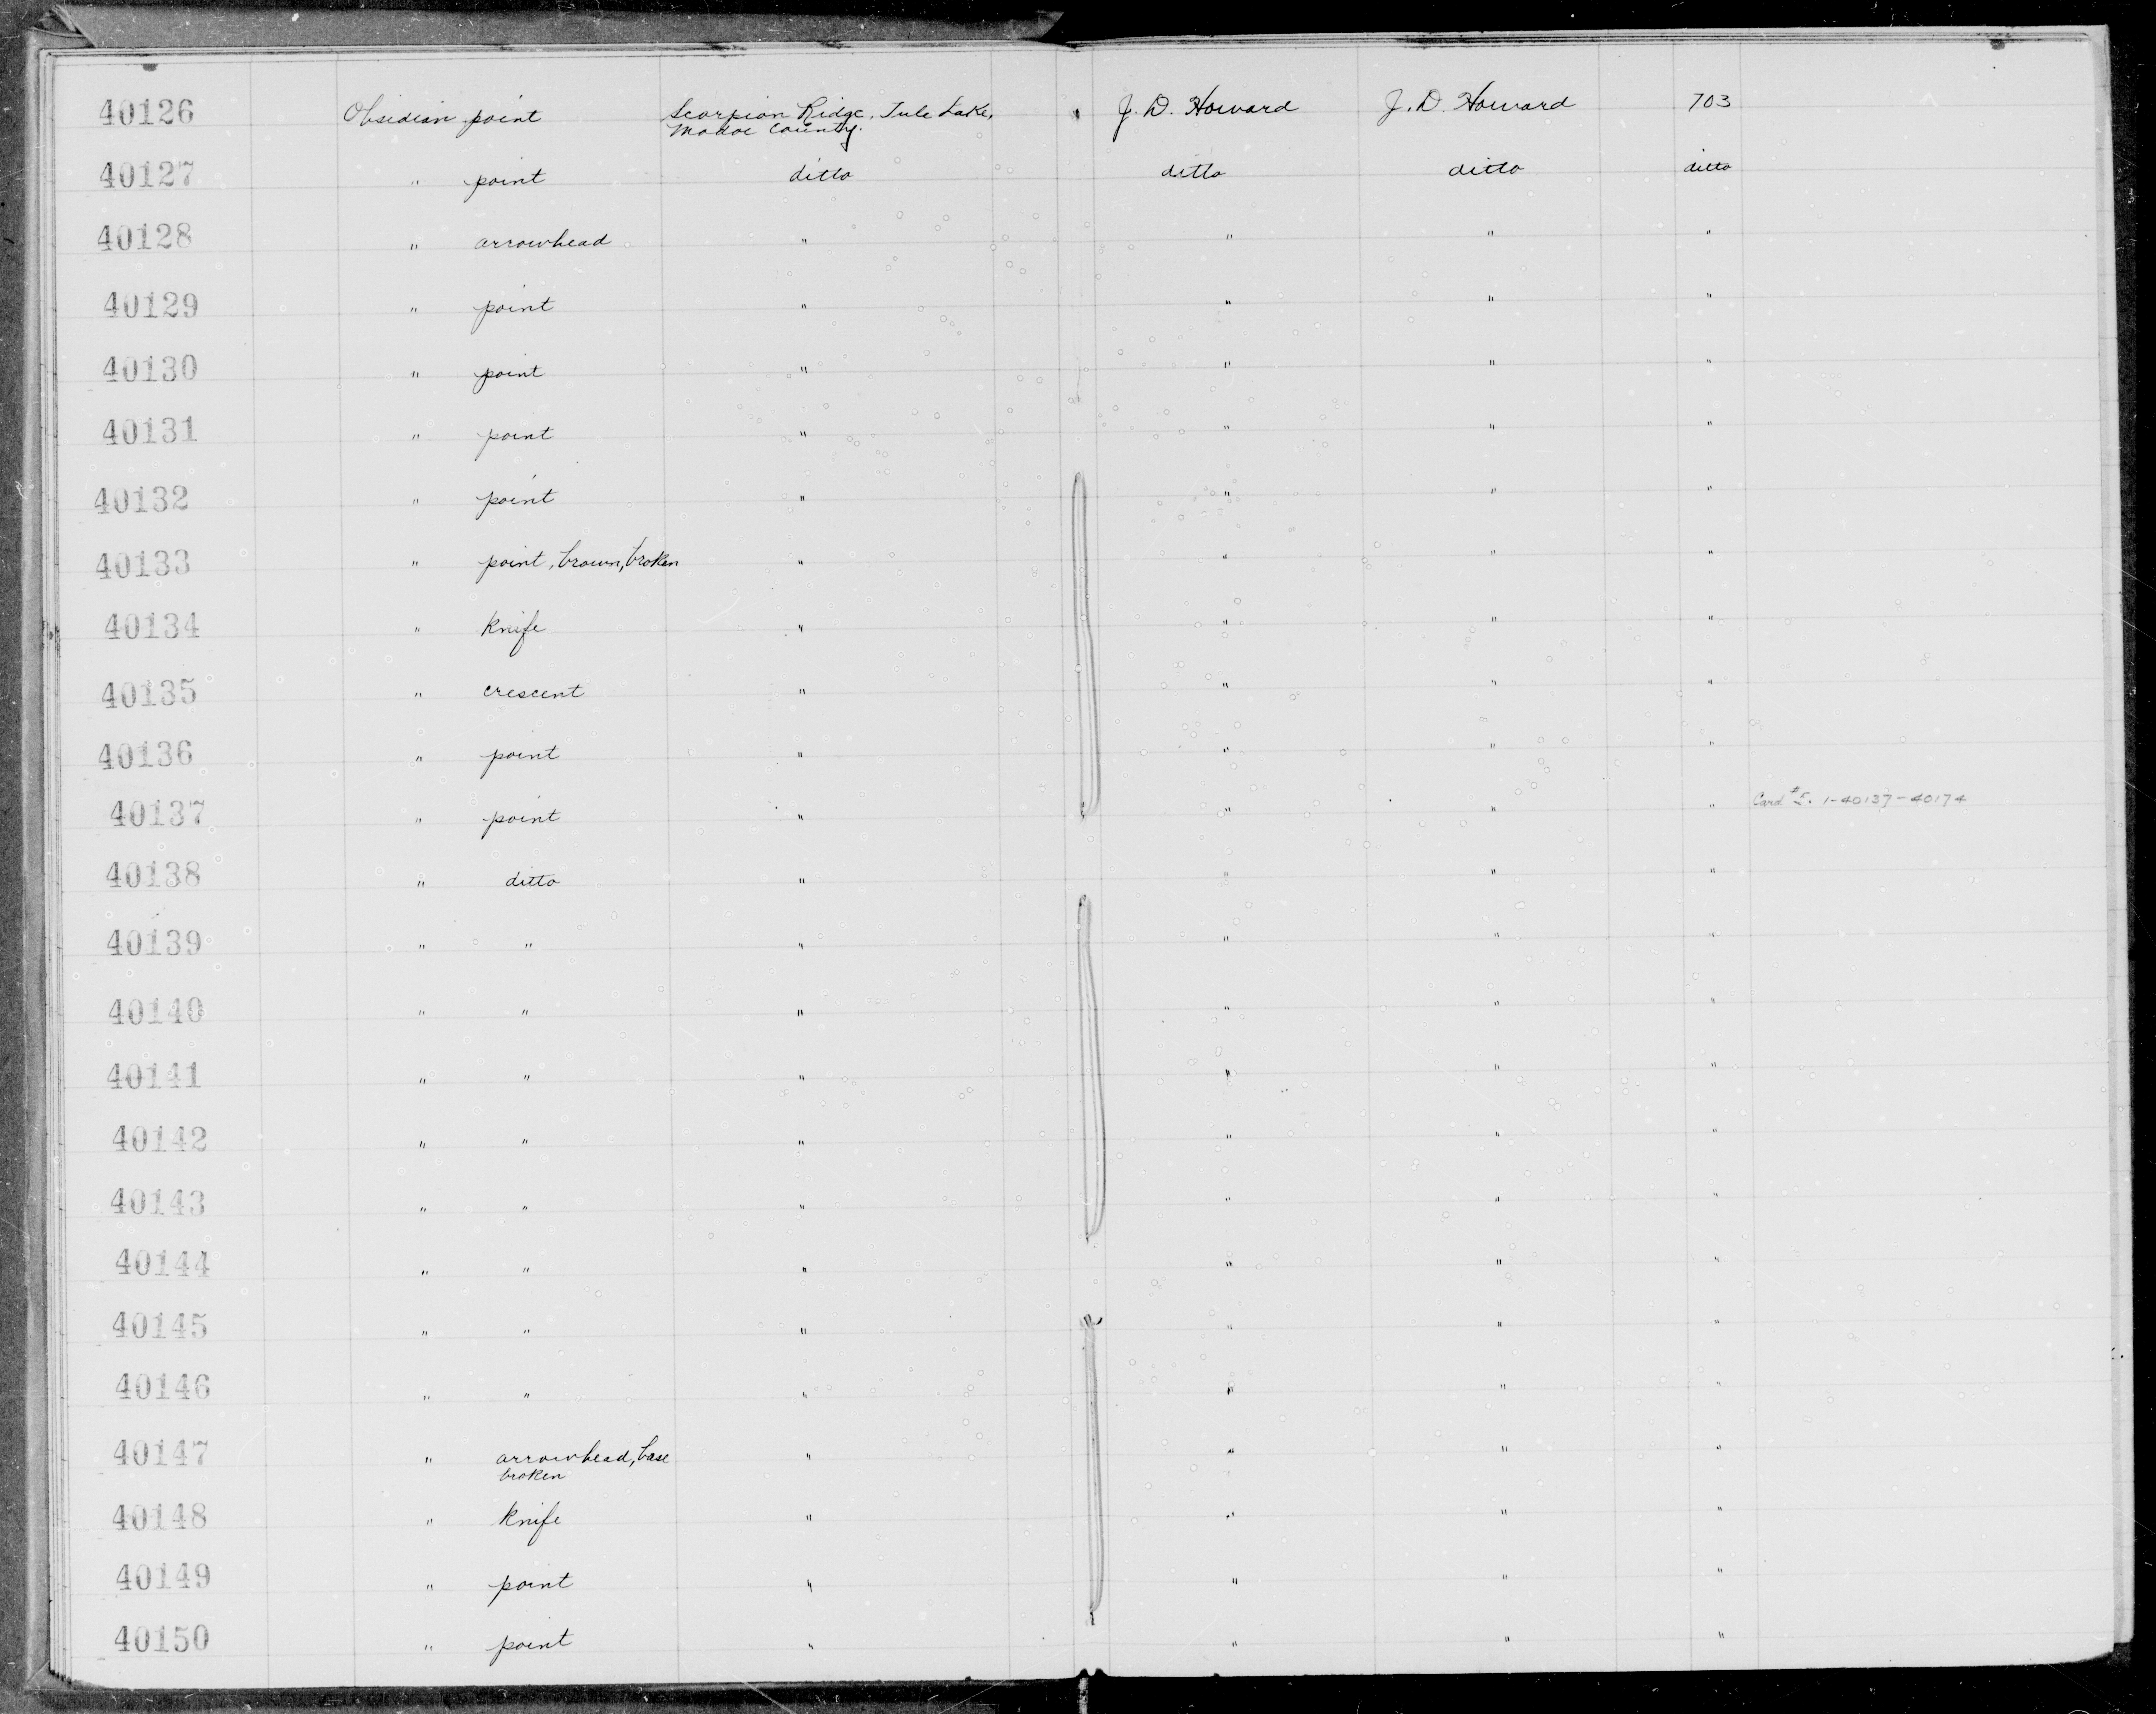 40126 Obsidian point Scorpion Ridge, Tule Lake, J. D. Howard J. D. Howard 703
Modoc County.
40127 " point ditto ditto ditto ditto
40128 " arrowhead " " " "
40129 " point " " " "
40130 " point " " " "
40131 " point " " " "
40132 " point " " " "
40133 " point, brown, broken " " " "
40134 " Knife " " " "
40135 " crescent " " " "
40136 " point " " " "
40137 " point " " " " Card #5. 1-40137-40174
40138 " ditto " " " "
40139 " " " " " "
40140 " " " " " "
40141 " " " " " "
40142 " " " " " "
40143 " " " " " "
40144 " " " " " "
40145 " " " " " "
40146 " " " " " "
40147 " arrowhead, base " " " "
broken
40148 " Knife " " " "
40149 " point " " " "
40150 " point " " " "